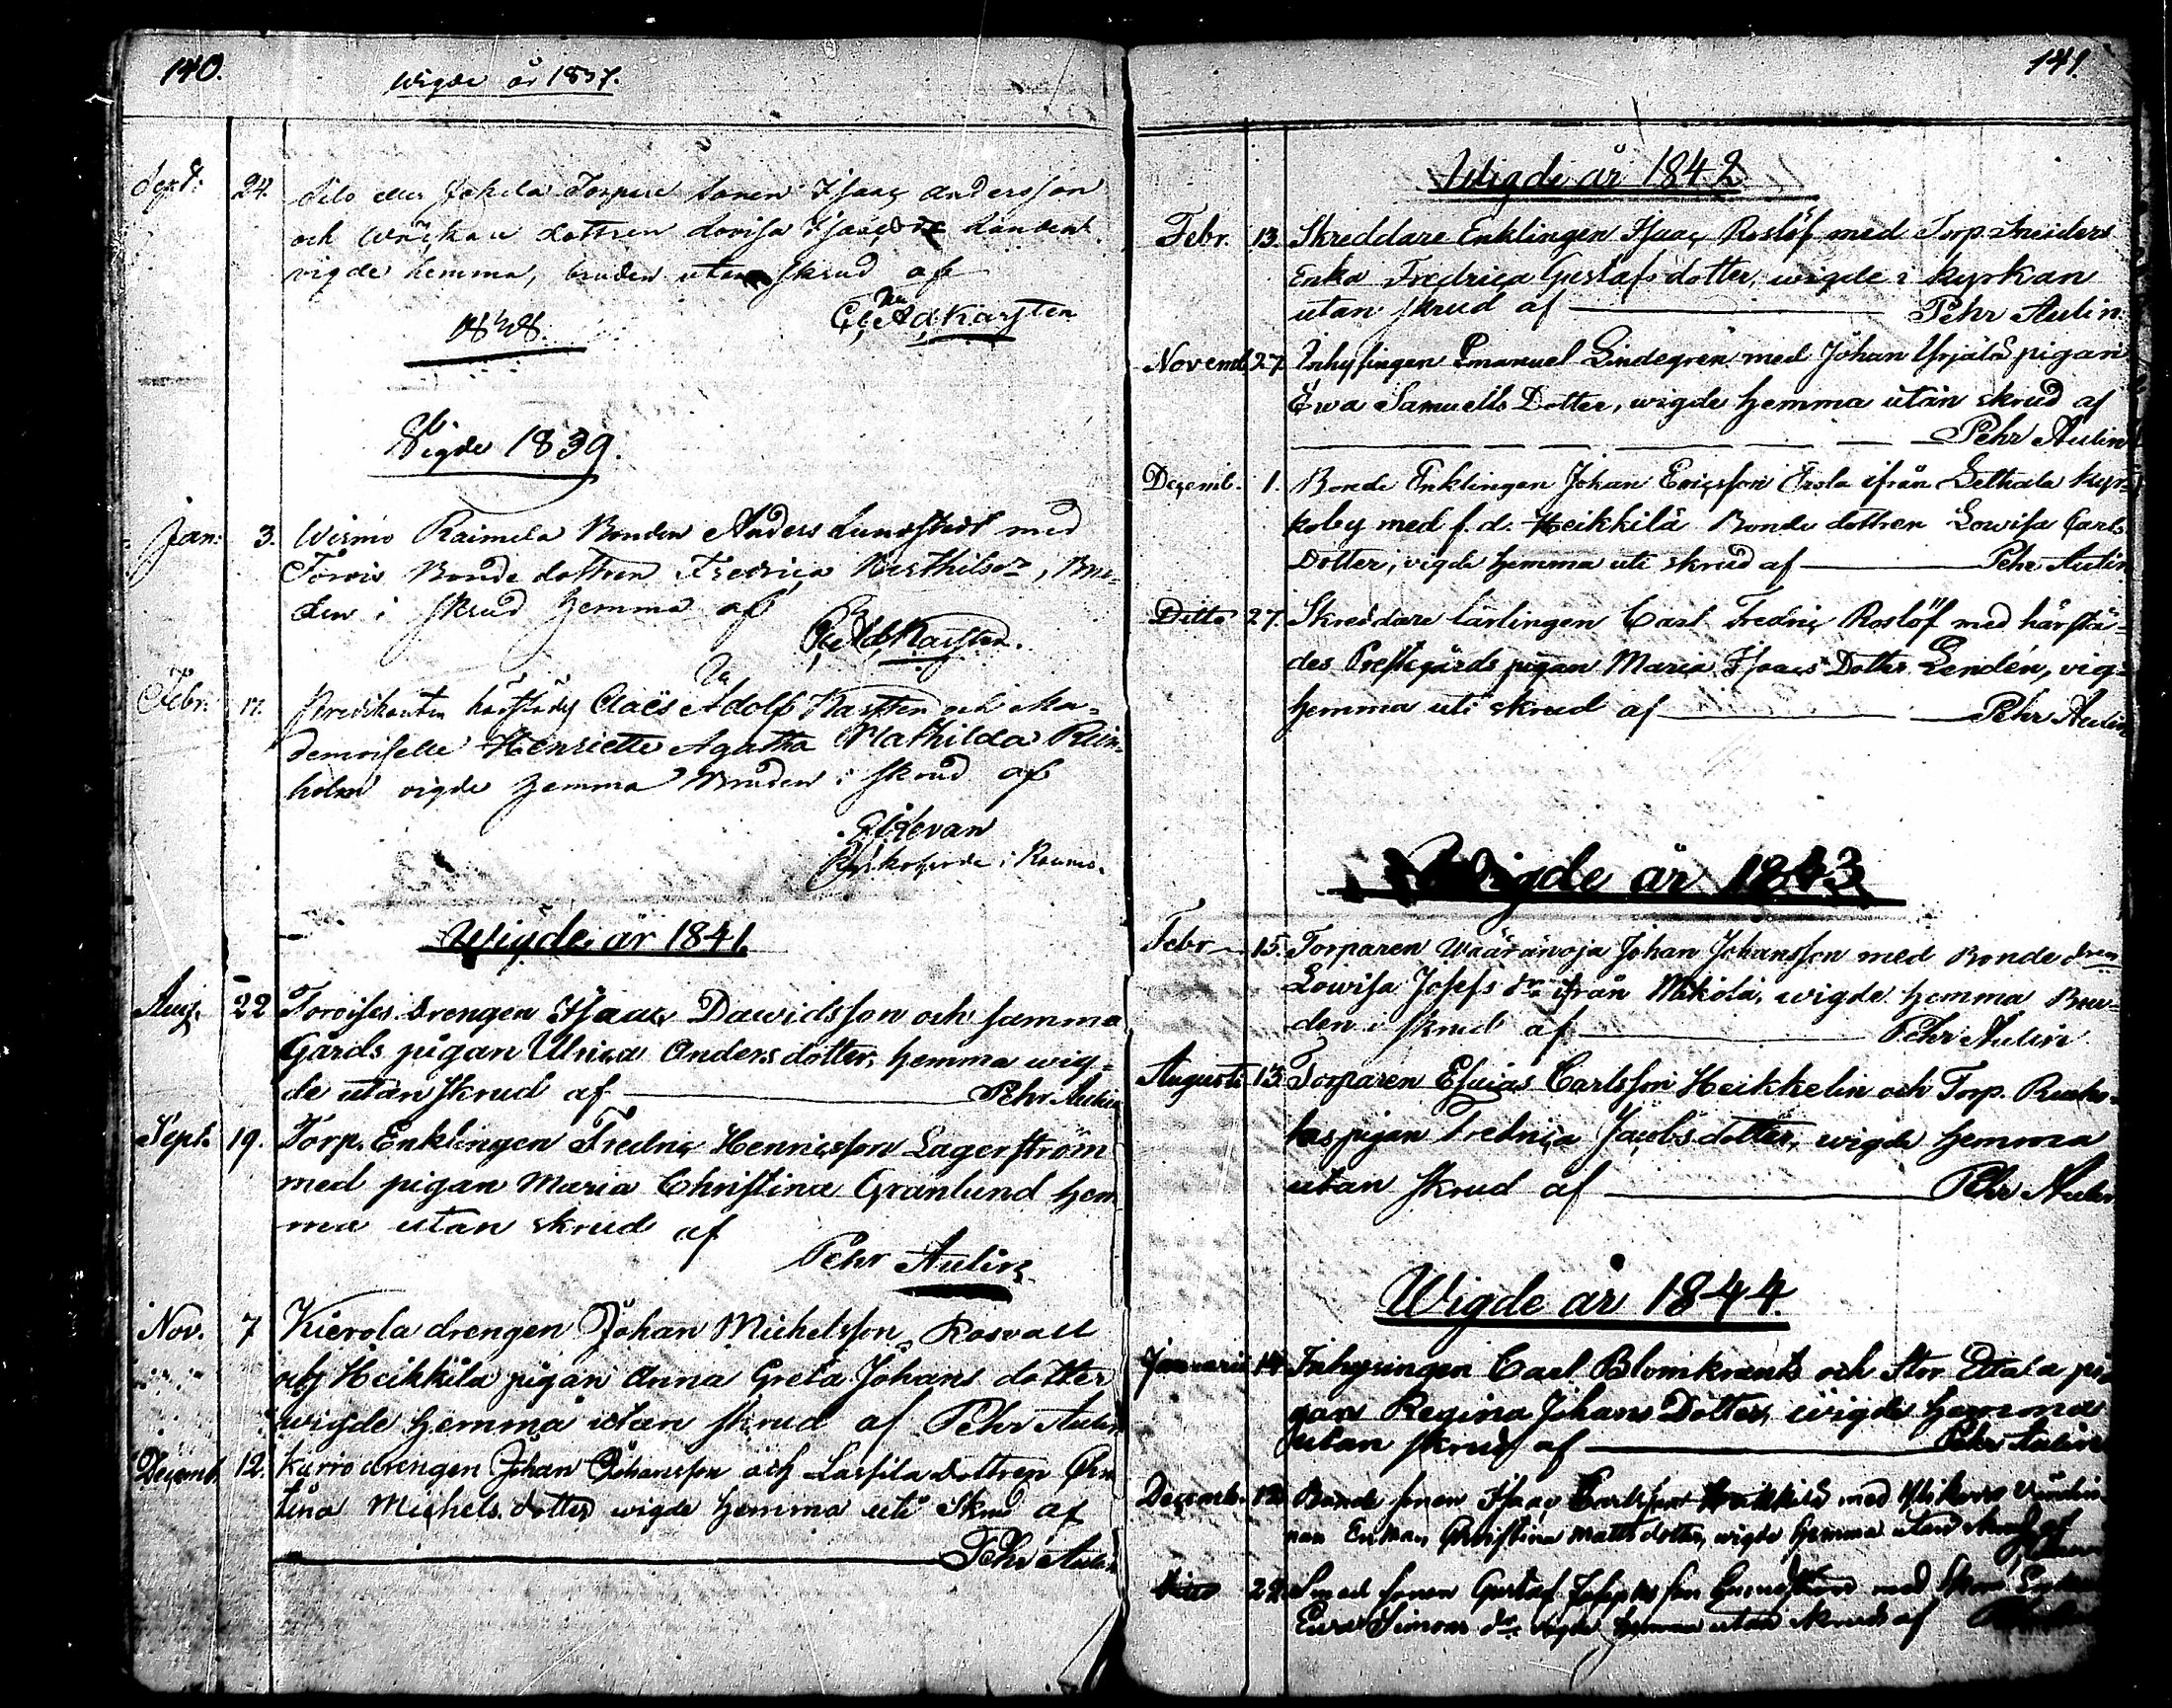 140.
Wigde år 1837.
Sept. 24. Jokela Torpare sonen Isaac Andersson
och dottren Lovisa
vigde hemma, bruden utan skrud af
Karsten
1838.
Wigde 1839.
Jan: 3. Wirmo Raimela Bonden Anders Lundstedt med
Torois Bonde dottren Fredrica, Bru-
den i skrud hemma af
Karsten.
Febr. 17. Predikanten härstädes Claës Adolf Karsten och Ma-
demoiselle Henriette Agatha Mathilda Rein-
holm vigde hemma Bruden i skrud af
Levan
Kyrkoherde i Raumo.
Wigde år 1841.
Aug. 22 Toroises drengen Isaac Dawidsson och samma
Gårds pigan Ulrica Anders dotter, hemma wig-
de utan skrud af — Pehr Aulin
Sept. 19. Torp. Enklingen Fredric Henricsson Lagerström
med pigan Maria Christina Granlund hem
ma utan skrud af
Pehr Aulin
Nov. 7 Kierola drengen Johan Michelsson Rosvall
och Heikkilä pigan Anna Greta Johans dotter
wigde hemma utan skrud af Pehr Aulin
Decemb. 12. Kurro drengen Johan Johansson och Lassila Dottren
tina Michels dotter wigde hemma uti Skrud af
— Pehr Aulin
141.
Wigde år 1842
Febr. 13. Skreddare Enklingen Isaac Roslöf med Torp.
Enka Fredrica Gustafs dotter, wigde i kyrkan
utan skrud af — Pehr Aulin.
Novemb. 27. Inhysingen Emanuel Lindegren med Johan Yrjälä pigan
Ewa Samuels Dotter, wigde hemma utan skrud af
— Pehr Aulin
Decemb. 1. Bonde Enklingen Johan Ericsson Erola ifrån Lethala kyr-
koby med f.d. Heikkilä Bonde dottren Lowisa Carls
Dotter, vigde hemma uti skrud af — Pehr Aulin
Ditto 27. Skreddare lärlingen Carl Fredric Roslöf med härstä-
des Prestegårds pigan Maria Isaacs Dotter Lendén, vig-
hemma uti skrud af — Pehr Aulin
Wigde år 1843
Febr 15. Torparen Wääränoja Johan Johansson med Bonde
Lowisa Josefs dr ifrån Mikola, wigde hemma Bru-
den i skrud af — Pehr Aulin
Augusti 13. Torparen Esaias Carlsson Heikkelin och Torp.
pigan Fredrica Jacobs dotter, wigde hemma
utan skrud af — Pehr Aulin
Wigde år 1844.
Januarii 14. Inhysingen Carl Blomkrants och Stor Ettala pi
gan Regina Johans Dotter, wigde hemma
utan skrud af — Pehr Aulin
Decemb. 12. Bonde sonen Isaac Carlsson Heikkilä med
Enkan Christina Matts dotter, wigde hemma utan skrud af
Ditto 22. sonen Gustaf med
Ewa Simons dr wigde hemma utan skrud af